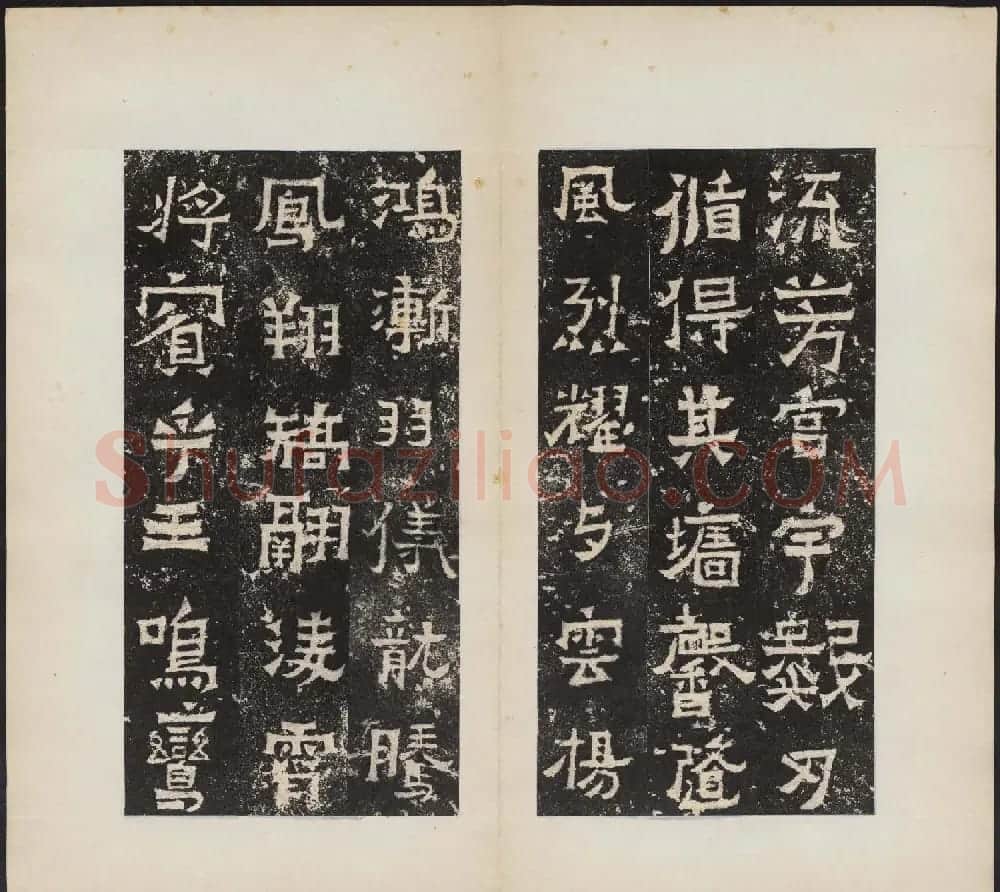 流芳宮宇數刃
循得其墻馨隨
風烈耀与雲揚
鴻漸羽儀龍騰
鳳翔矯翮淩霄
將賓乎王鳴鸞
Shufaziliao.COM